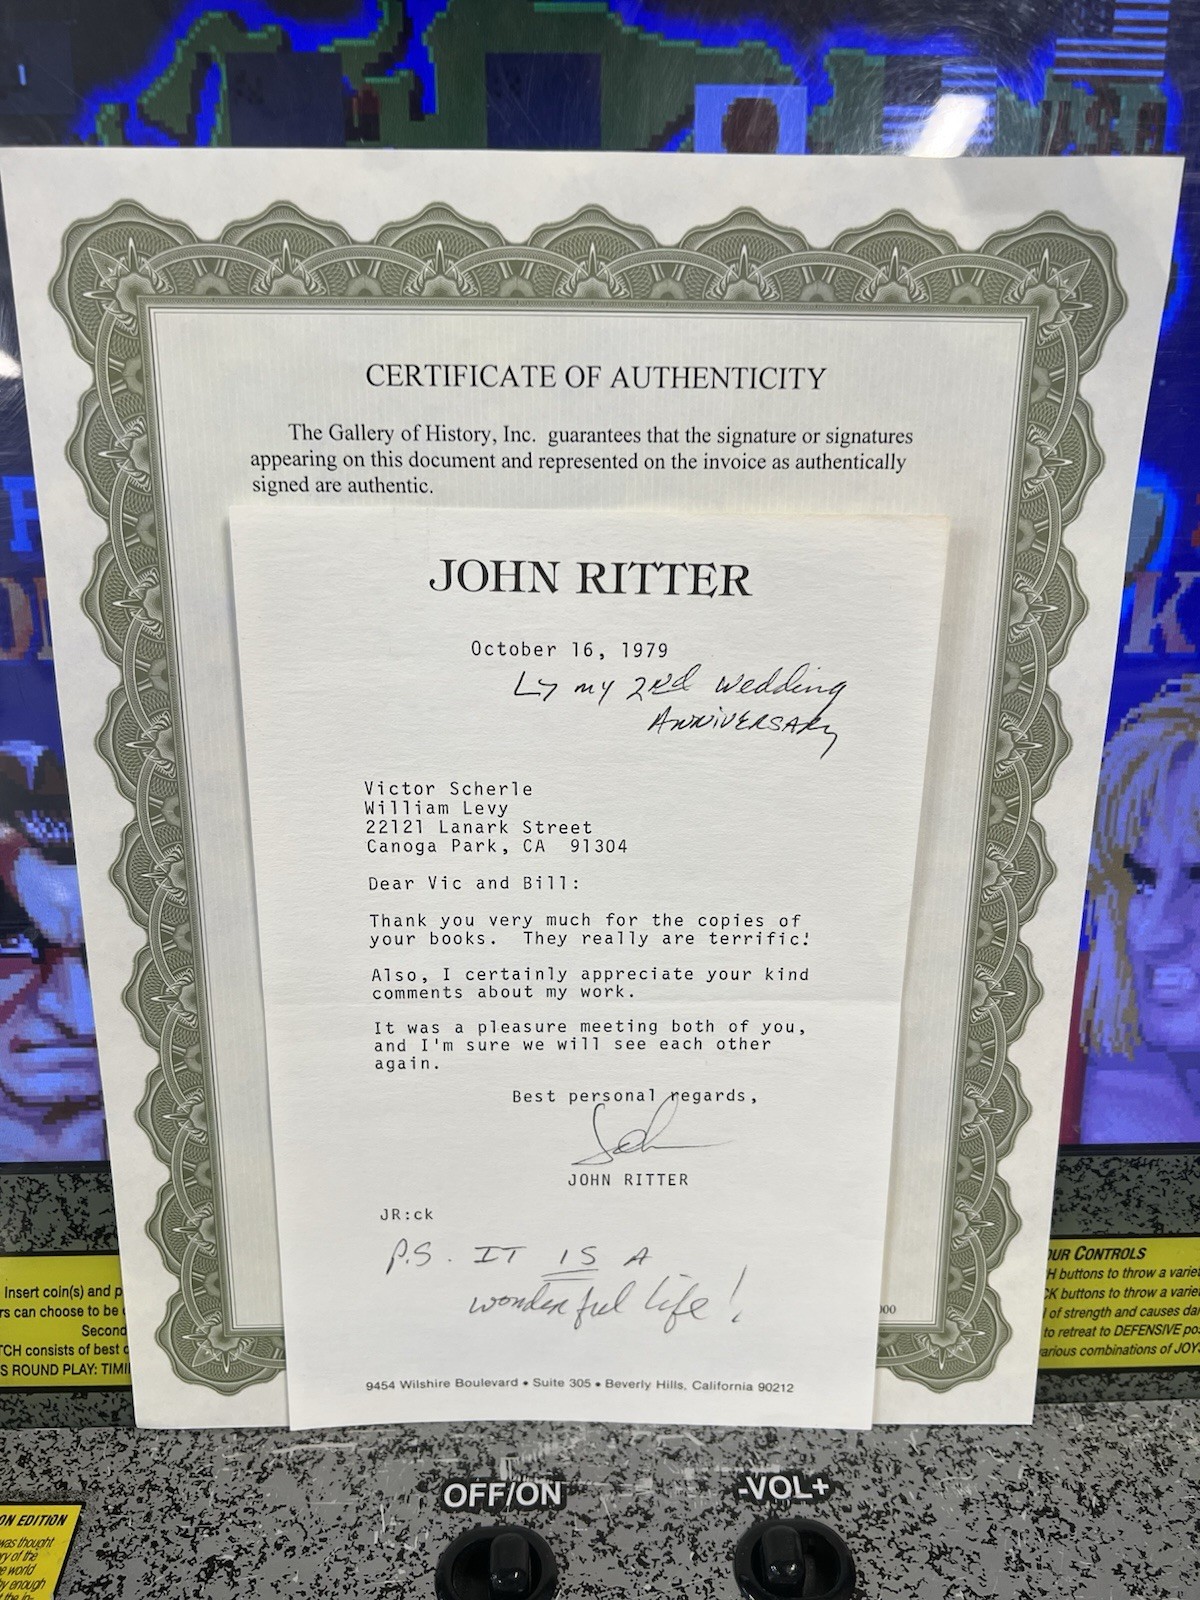 CERTIFICATE OF AUTHENTICITY
The Gallery of History, Inc. guarantees that the signature or signatures
appearing on this document and represented on the invoice as authentically
signed are authentic.
JOHN RITTER
October 16, 1979
my 2nd wedding
ANNIVERSARY
Victor Scherle
William Levy
22121 Lanark Street
Canoga Park, CA 91304
Dear Vic and Bill:
Thank you very much for the copies of
your books. They really are terrific!
Also, I certainly appreciate your kind
comments about my work.
It was a pleasure meeting both of you,
and I'm sure we will see each other
again.
Best personal regards,
John
JOHN RITTER
JR:ck
P.S. IT IS A
wonderful life!
9454 Wilshire Boulevard • Suite 305 • Beverly Hills, California 90212
000
Insert coin(s) and
rs can choose to be
Second
TCH consists of best
S ROUND PLAY:
OUR CONTROLS
buttons to throw a
buttons to throw a
of strength and causes
to retreat to DEFENSIVE
various combinations of
OFF/ON
-VOL+
ON EDITION
was thought
ry of the
world
by enough